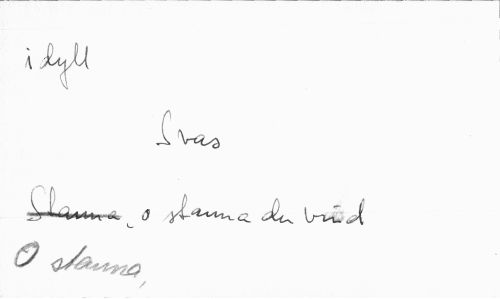 idyll
Svas
Stanna, o stanna du vind
O stanna,